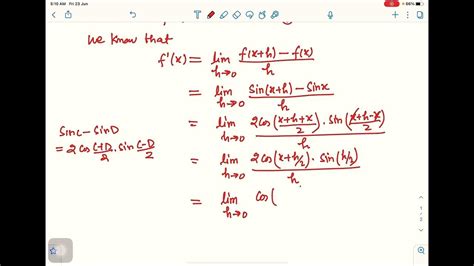 8:10 AM Fri 23 Jun
66%
we know that
f'(x) = lim h→0 f(x+h) - f(x) / h
= lim h→0 Sin(x+h) - Sinx / h
SinC - SinD
= 2cos (C+D)/2 . sin (C-D)/2
= lim h→0 2cos((x+h+x)/2) . sin((x+h-x)/2) / h
= lim h→0 2cos(x+h/2) . sin(h/2) / h
= lim h→0 cos(